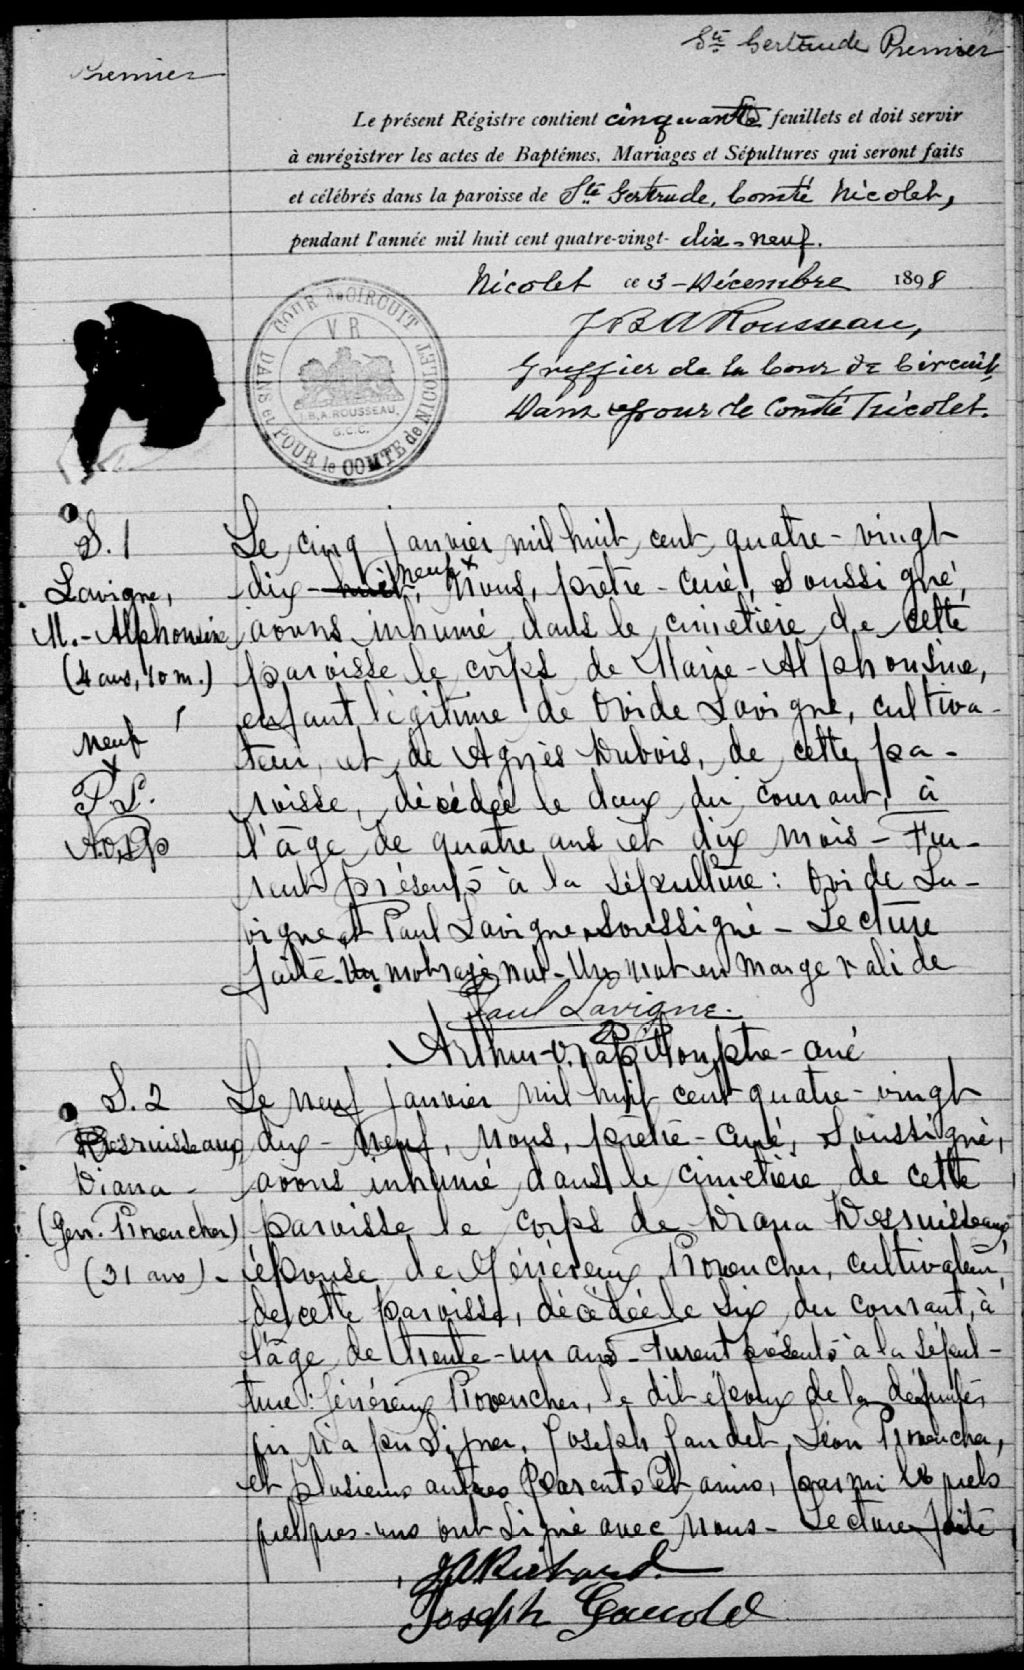 Ste Gertrude Premier
Premier
Le présent Régistre contient cinquante feuillets et doit servir
à enrégistrer les actes de Baptêmes, Mariages et Sépultures qui seront faits
et célébrés dans la paroisse de Ste Gertrude, Comté Nicolet,
pendant l'année mil huit cent quatre-vingt- dix-neuf.
Nicolet ce 3 - Décembre 1898
J B A Rousseau,
Greffier de la Cour de Circuit
Dans & pour le Comté Nicolet.
COUR de CIRCUIT
DANS et POUR le COMTE de NICOLET
V R
J.B.A. ROUSSEAU,
G.C.C.
S. 1
Lavigne,
M.-Alphonsine
(4 ans, 10 m.)
neuf
P L.
Le cinq janvier mil huit cent quatre-vingt
neuf
dix-huit, Nous, prêtre-curé, soussigné,
avons inhumé dans le cimetière de cette
paroisse le corps de Marie-Alphonsine,
enfant légitime de Ovide Lavigne, cultiva-
teur, et de Agnès Dubois, de cette pa-
roisse, décédée le deux du courant, à
l'âge de quatre ans et dix mois - Fu-
rent présents à la sépulture : Ovide La-
vigne et Paul Lavigne soussigné - Lecture
faite - Un mot rayé nul - Un mot en marge valide
Paul Lavigne.
Arthur-O. Papillon, ptre-curé
S. 2
Desruisseaux
Diana -
(Gen. Provencher)
(31 ans) -
Le neuf janvier mil huit cent quatre-vingt
dix-neuf, Nous, prêtre-curé, soussigné,
avons inhumé dans le cimetière de cette
paroisse le corps de Diana Desruisseaux
épouse de Généreux Provencher, cultivateur,
de cette paroisse, décédée le six du courant, à
l'âge de trente-un ans - Furent présents à la sépul-
ture : Généreux Provencher, le dit époux de la défunte,
qui n'a pu signer, Joseph Gaudet, Léon Provencher,
et plusieurs autres parents et amis, parmi lesquels
quelques-uns ont signé avec Nous - Lecture faite
J A Richard
Joseph Gaudet